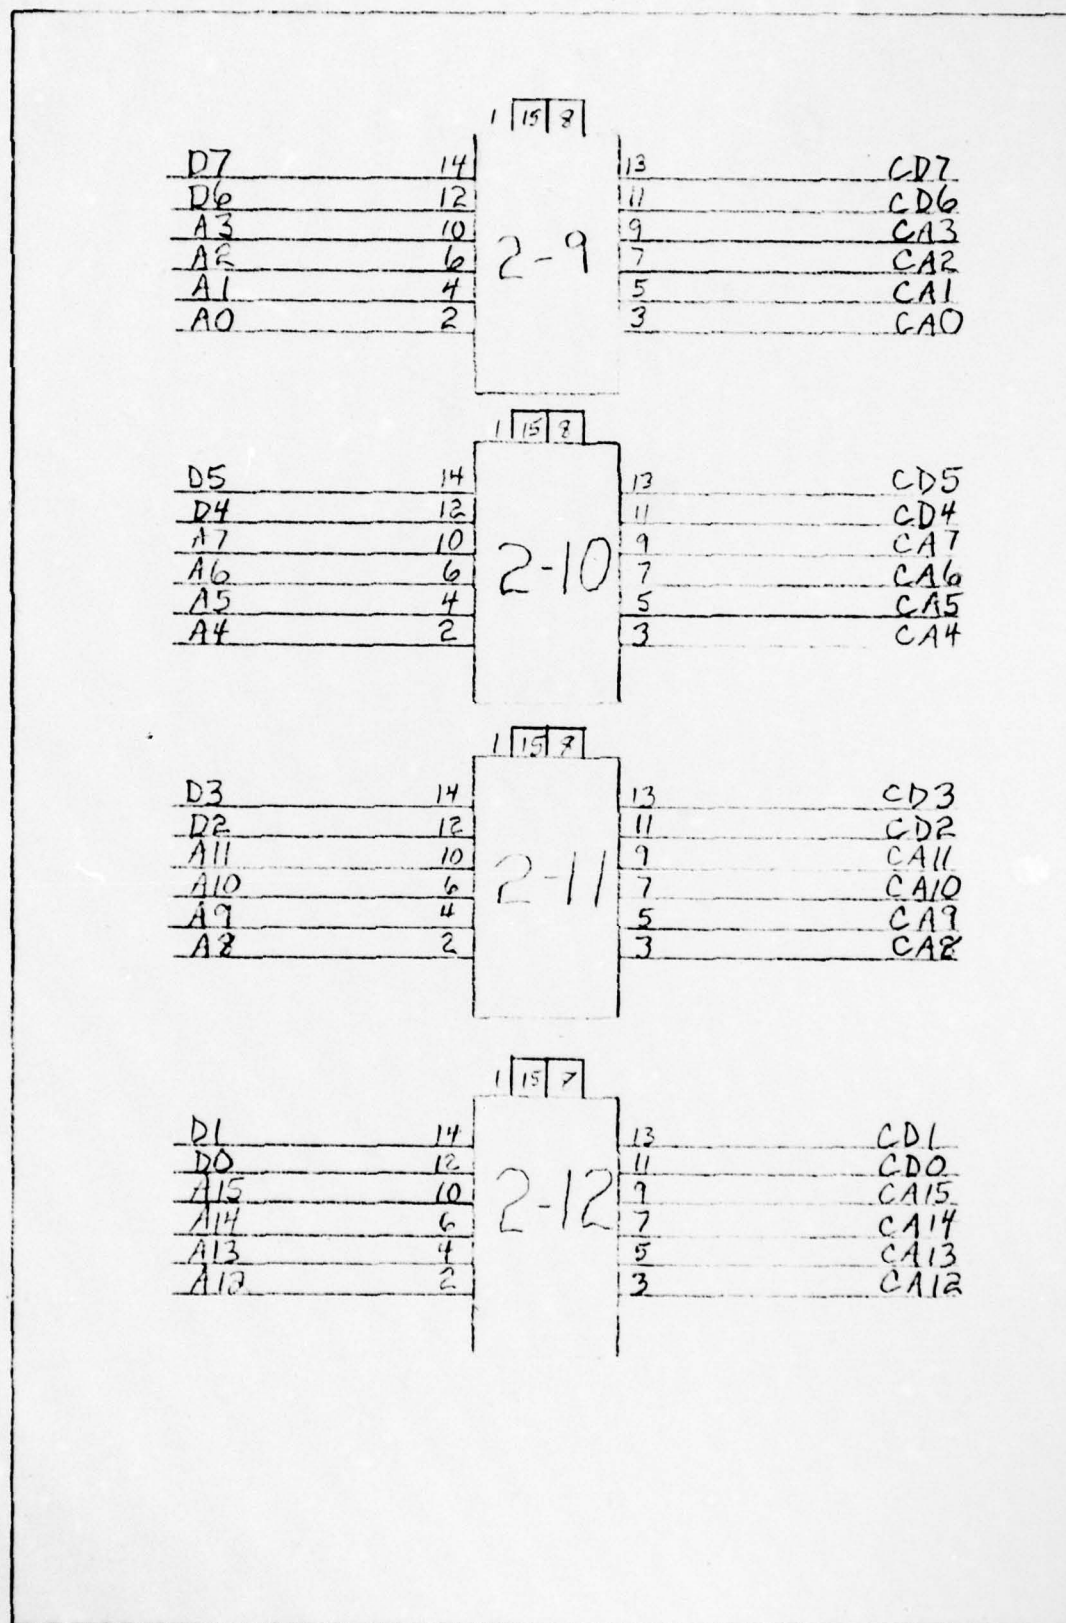 1 15 8
D7 14 13 CD7
D6 12 11 CD6
A3 10 9 CA3
A2 6 2-9 7 CA2
A1 4 5 CA1
A0 2 3 CA0
1 15 8
D5 14 13 CD5
D4 12 11 CD4
A7 10 9 CA7
A6 6 2-10 7 CA6
A5 4 5 CA5
A4 2 3 CA4
1 15 8
D3 14 13 CD3
D2 12 11 CD2
A11 10 9 CA11
A10 6 2-11 7 CA10
A9 4 5 CA9
A8 2 3 CA8
1 15 7
D1 14 13 CD1
D0 12 11 CD0
A15 10 9 CA15
A14 6 2-12 7 CA14
A13 4 5 CA13
A12 2 3 CA12